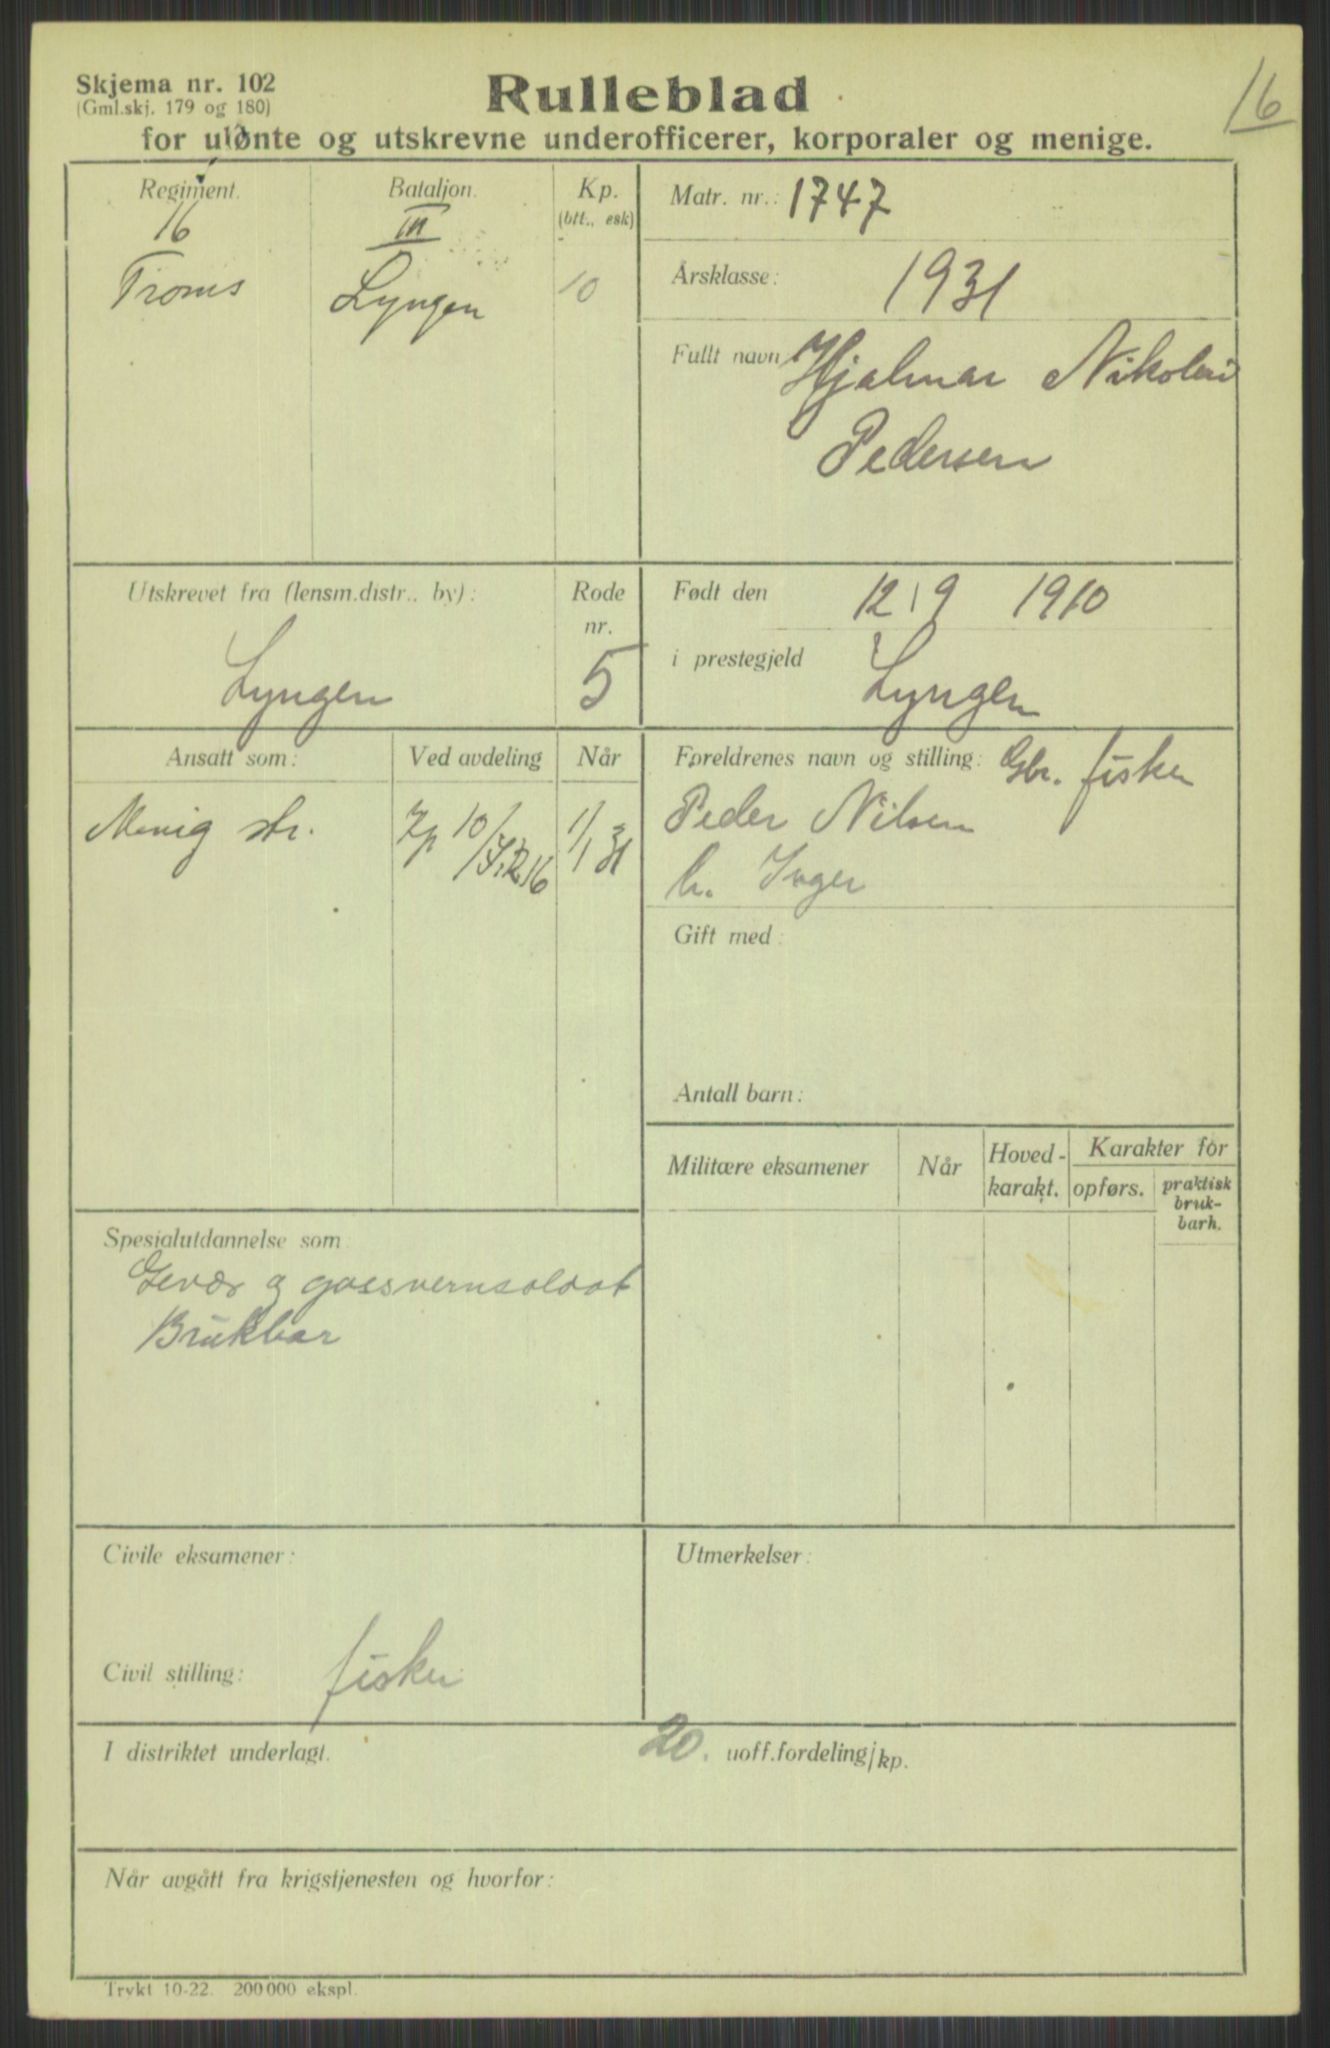 16
Skjema nr. 102
(Gml.skj. 179 og 180)
Rulleblad
for ulønte og utskrevne underofficerer, korporaler og menige.
Regiment.
16
Troms
Bataljon.
III
Lyngen
Kp.
(btt., esk)
10
Matr. nr.: 1747
Årsklasse: 1931
Fullt navn Hjalmar Nikolai
Pedersen
Utskrevet fra (lensm.distr., by):
Lyngen
Rode
nr.
5
Født den 12/9 1910
i prestegjeld Lyngen
Ansatt som:
Menig str.
Ved avdeling
Kp 10/
/I.R.16
Når
1/1 31
Foreldrenes navn og stilling: Gbr. fisker
Peder Nilsen
h. Inger
Gift med:
Antall barn:
Militære eksamener
Når
Hoved-
karakt.
Karakter for
opførs.
praktisk
bruk-
barh.
Spesialutdannelse som
Gevær og gassvernsoldat
Brukbar
Civile eksamener:
Civil stilling: fisker
Utmerkelser:
I distriktet underlagt.
20. uoff.fordeling/kp.
Når avgått fra krigstjenesten og hvorfor:
Trykt 10-22. 200 000 ekspl.